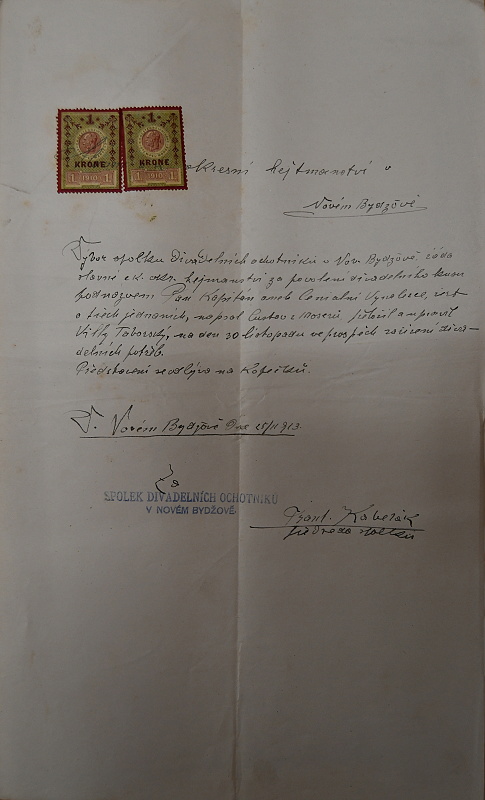 1 1
KRONE KRONE
1 1910 1 1 1910 1
okresní hejtmanství v
Novém Bydžově
Výbor spolku Divadelních ochotníků v Nov. Bydžově, žádá
slavné c.k. okr. hejmanství za povolení divadelního kusu
pod názvem Pan Kapitán aneb Vynalezce, žert
o třech jednáních, napsal Gustav z Moserů, přeložil a upravil
Villy Táborský, na den 30 listopadu ve prospěch zařízení diva-
delních potřeb.
Představení se odbývá na Kopečku.
V. Novém Bydžově Dne 25/11 1913.
Za
SPOLEK DIVADELNÍCH OCHOTNÍKŮ
V NOVÉM BYDŽOVĚ
Frant.
předseda spolku